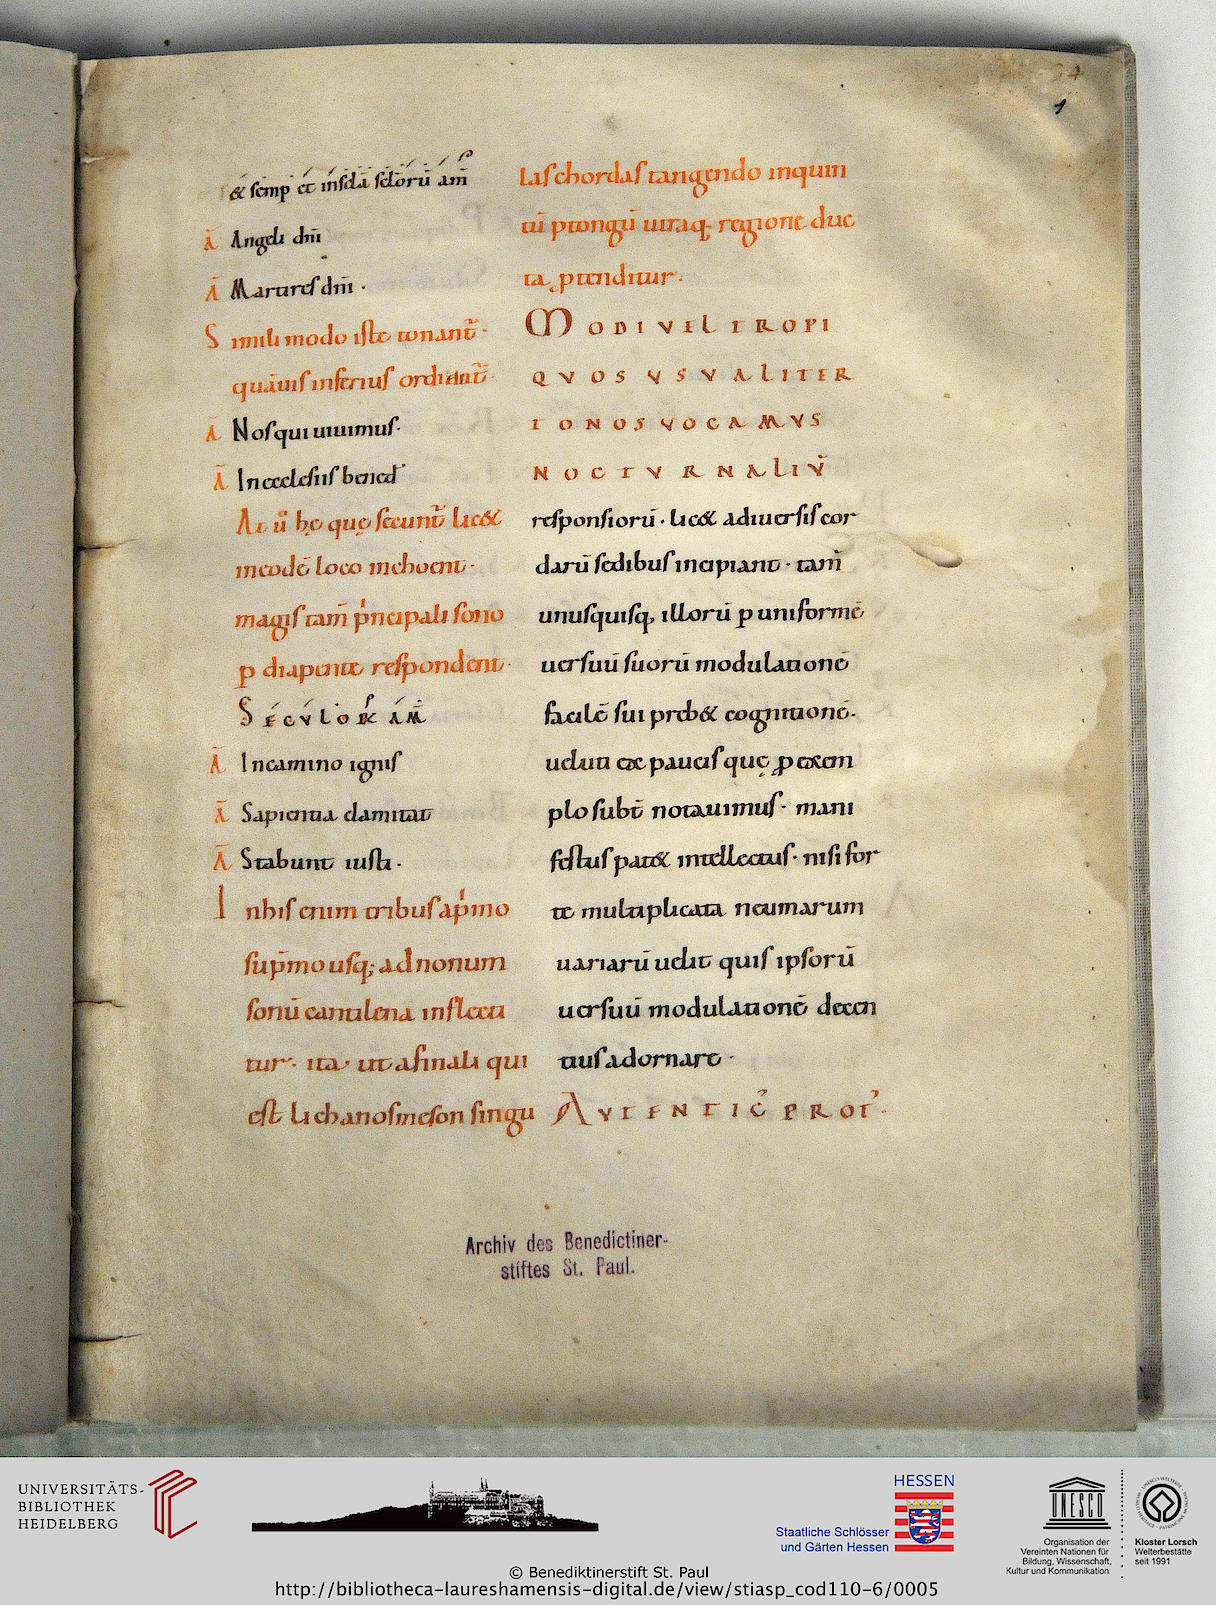 34
1
& semp et in scła scłorū am̄
Ā Angeli dn̄i
Ā Martires dn̄i .
Simili modo iste tonant᷑ .
quāuis inferius ordiant᷑ .
Ā Nos qui uiuimus .
Ā In ecclesiis bened
At u᷑ hę quę secunt᷑ lic&
in eodē loco inchoent .
magis tam̄ pͥncipali sono
ꝑ diapente respondent .
SECVLOR AM̄
Ā In camino ignis
Ā Sapientia clamitat
Ā Stabunt iusti .
In his enim tribus a pͥmo
sup̄mo usq; ad nonum
sonū cantilena inflecti
tur . ita ut a finali qui
est lichanos meson singu
las chordas tangendo in quin
tū ptongū utraq; regione duc
ta ptenditur .
MODI VEL TROPI
QVOS VSVALITER
TONOS VOCAMVS
NOCTVRNALIV̄
responsiorū . lic& a diuersis cor
darū sedibus incipiant . tam̄
unusquisq; illorū ꝑ uniformē
uersuū suorū modulationē
facilē sui preb& cognitionē .
ueluti ex paucis quę ꝓ exem
plo subt̄ notauimus . mani
festus pat& intellectus . nisi for
te multiplicata neumarum
uariarū uelit quis ipsorū
uersuū modulationē decen
tius adornare .
AVTENTIC᾽ PROT᾽ .
Archiv des Benedictiner-
stiftes St. Paul.
UNIVERSITÄTS-
BIBLIOTHEK
HEIDELBERG
HESSEN
Staatliche Schlösser
und Gärten Hessen
UNESCO
Organisation der
Vereinten Nationen für
Bildung, Wissenschaft,
Kultur und Kommunikation
Kloster Lorsch
Welterbestätte
seit 1991
© Benediktinerstift St. Paul
http://bibliotheca-laureshamensis-digital.de/view/stiasp_cod110-6/0005